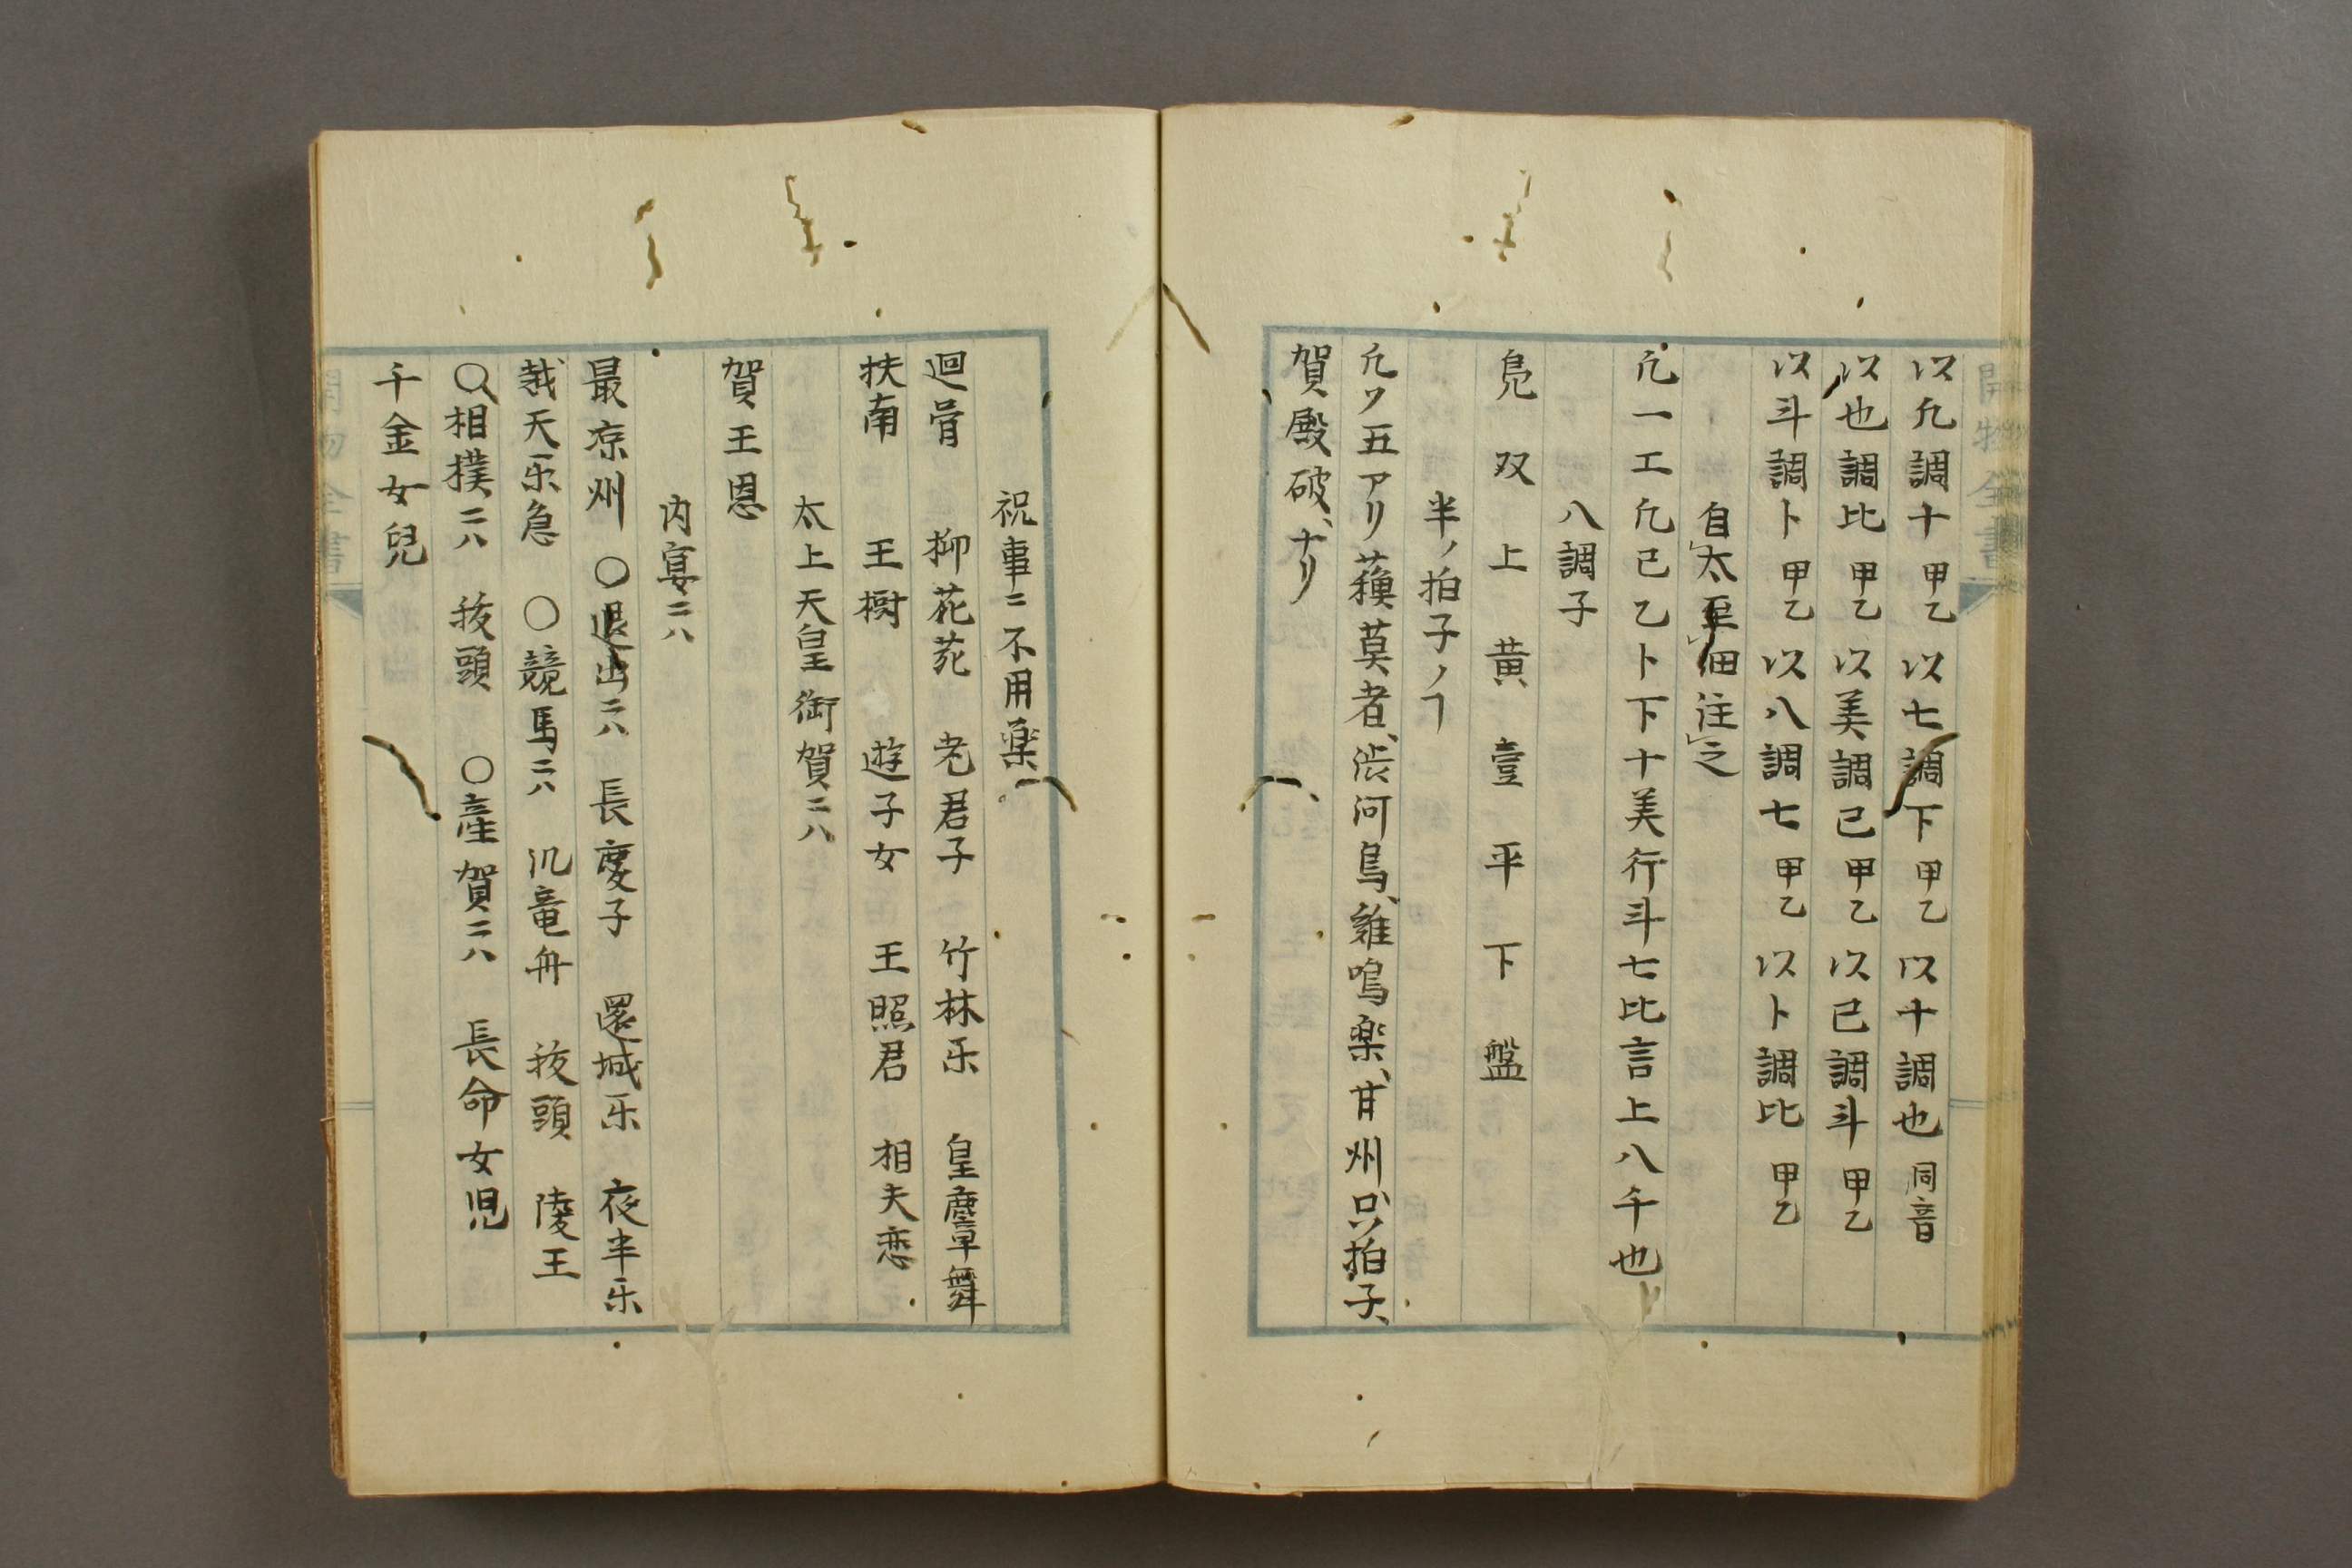 以凢調十甲乙以七調下甲乙以十調也同音
以也調比甲乙以美調己甲乙以己調斗甲乙
以斗調卜甲乙以八調七甲乙以卜調比甲乙
自太至佃注之
凢一工凢己乙卜下十美行斗七比言上八千也
八調子
鳧双上黄壹平下盤
半ノ拍子ノヿ
凢ワ五アリ蘓莫者、渋河鳥、雞鳴楽、甘州、只拍子、
賀殿破、ナリ
祝事ニ不用楽
迴骨 柳花苑 老君子 竹林乐 皇麞 章舞
扶南 王樹 遊子女 王照君 相夫恋
太上天皇御賀ニハ
賀王恩
内宴ニハ
最凉州 〇退出ニハ 長慶子 還城乐 夜半乐
裁天乐急 〇競馬ニハ 汎竜舟 抜頭 陵王
〇相撲ニハ 抜頭 〇產賀ニハ 長命女児
千金女兒
開物全書